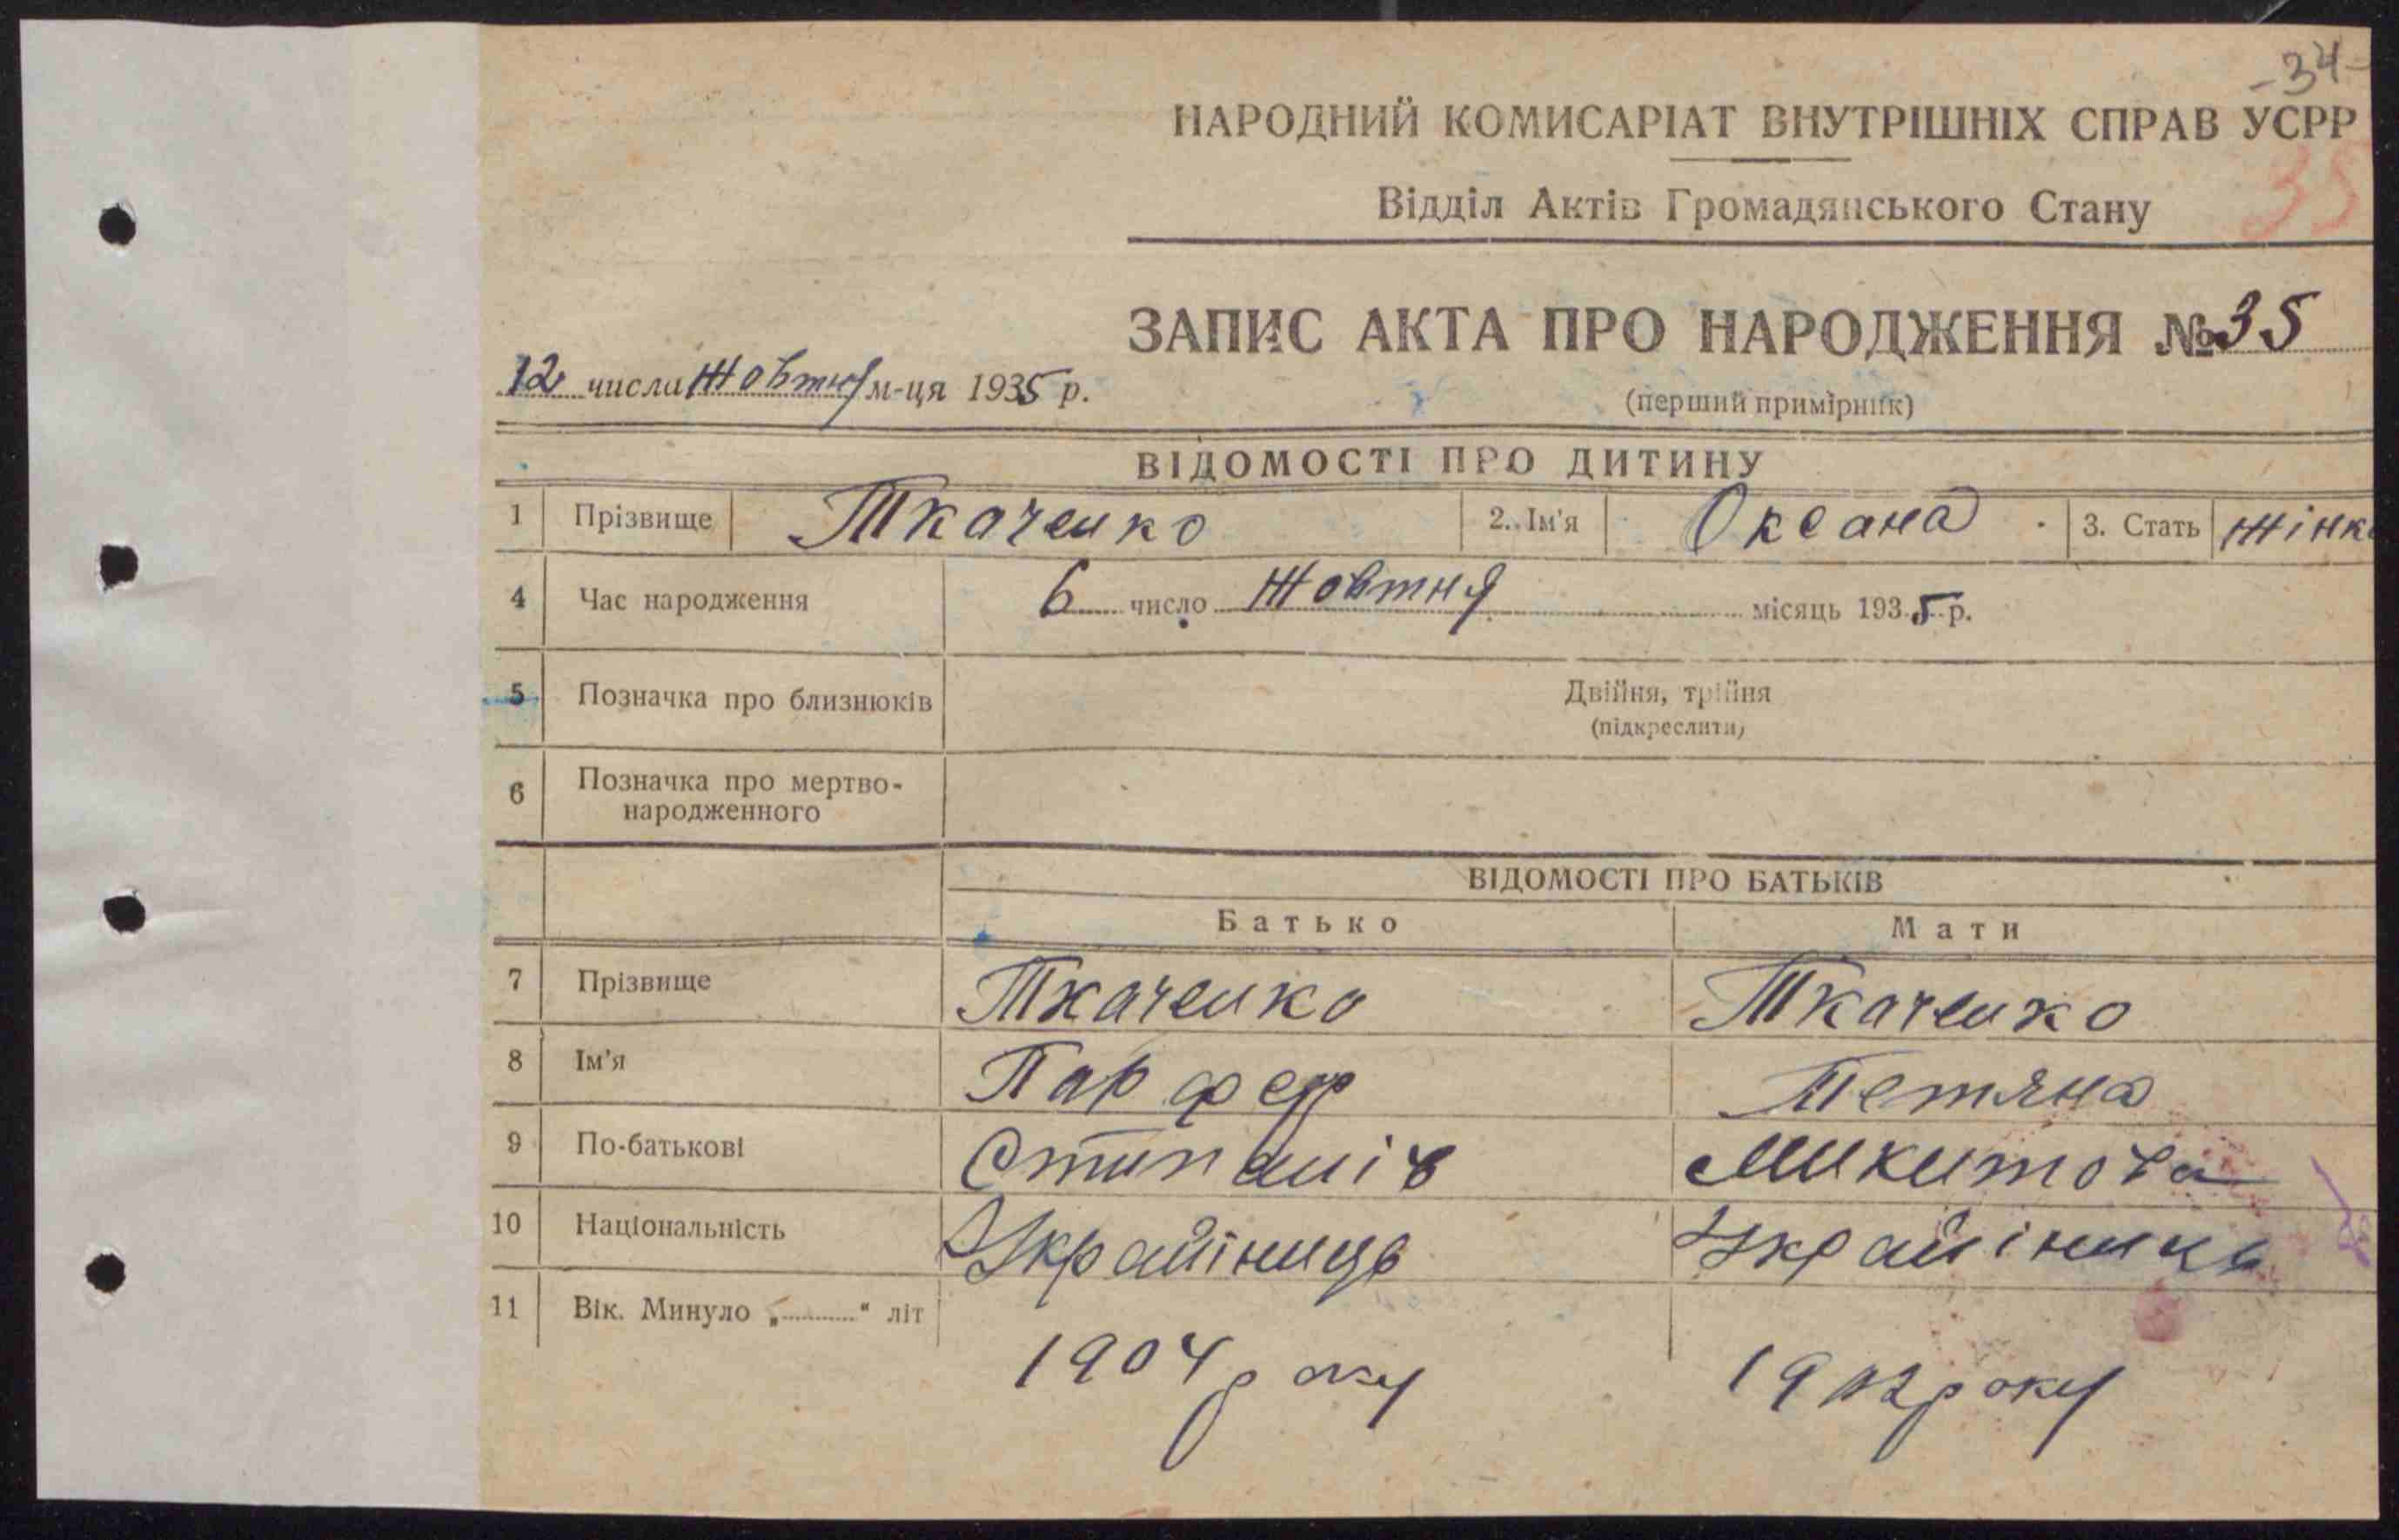 -34-
НАРОДНИЙ КОМИСАРІАТ ВНУТРІШНІХ СПРАВ УСРР
35
Відділ Актів Громадянського Стану
ЗАПИС АКТА ПРО НАРОДЖЕННЯ №35
12 числа Жовтня м-ця 1935 р.
(перший примірник)
ВІДОМОСТІ ПРО ДИТИНУ
1 Прізвище Ткаченко 2. Ім'я Оксана 3. Стать жінк
4 Час народження 6 число Жовтня місяць 1935 р.
5 Позначка про близнюків Двійня, трійня
(підкреслити)
6 Позначка про мертво-
народженного
ВІДОМОСТІ ПРО БАТЬКІВ
Батько Мати
7 Прізвище Ткаченко Ткаченко
8 Ім'я Парфер Тетяна
9 По-батькові Стипанів Микитова
10 Національність Украйінець Украйінець
11 Вік. Минуло „ “ літ
1904 року 1902 року